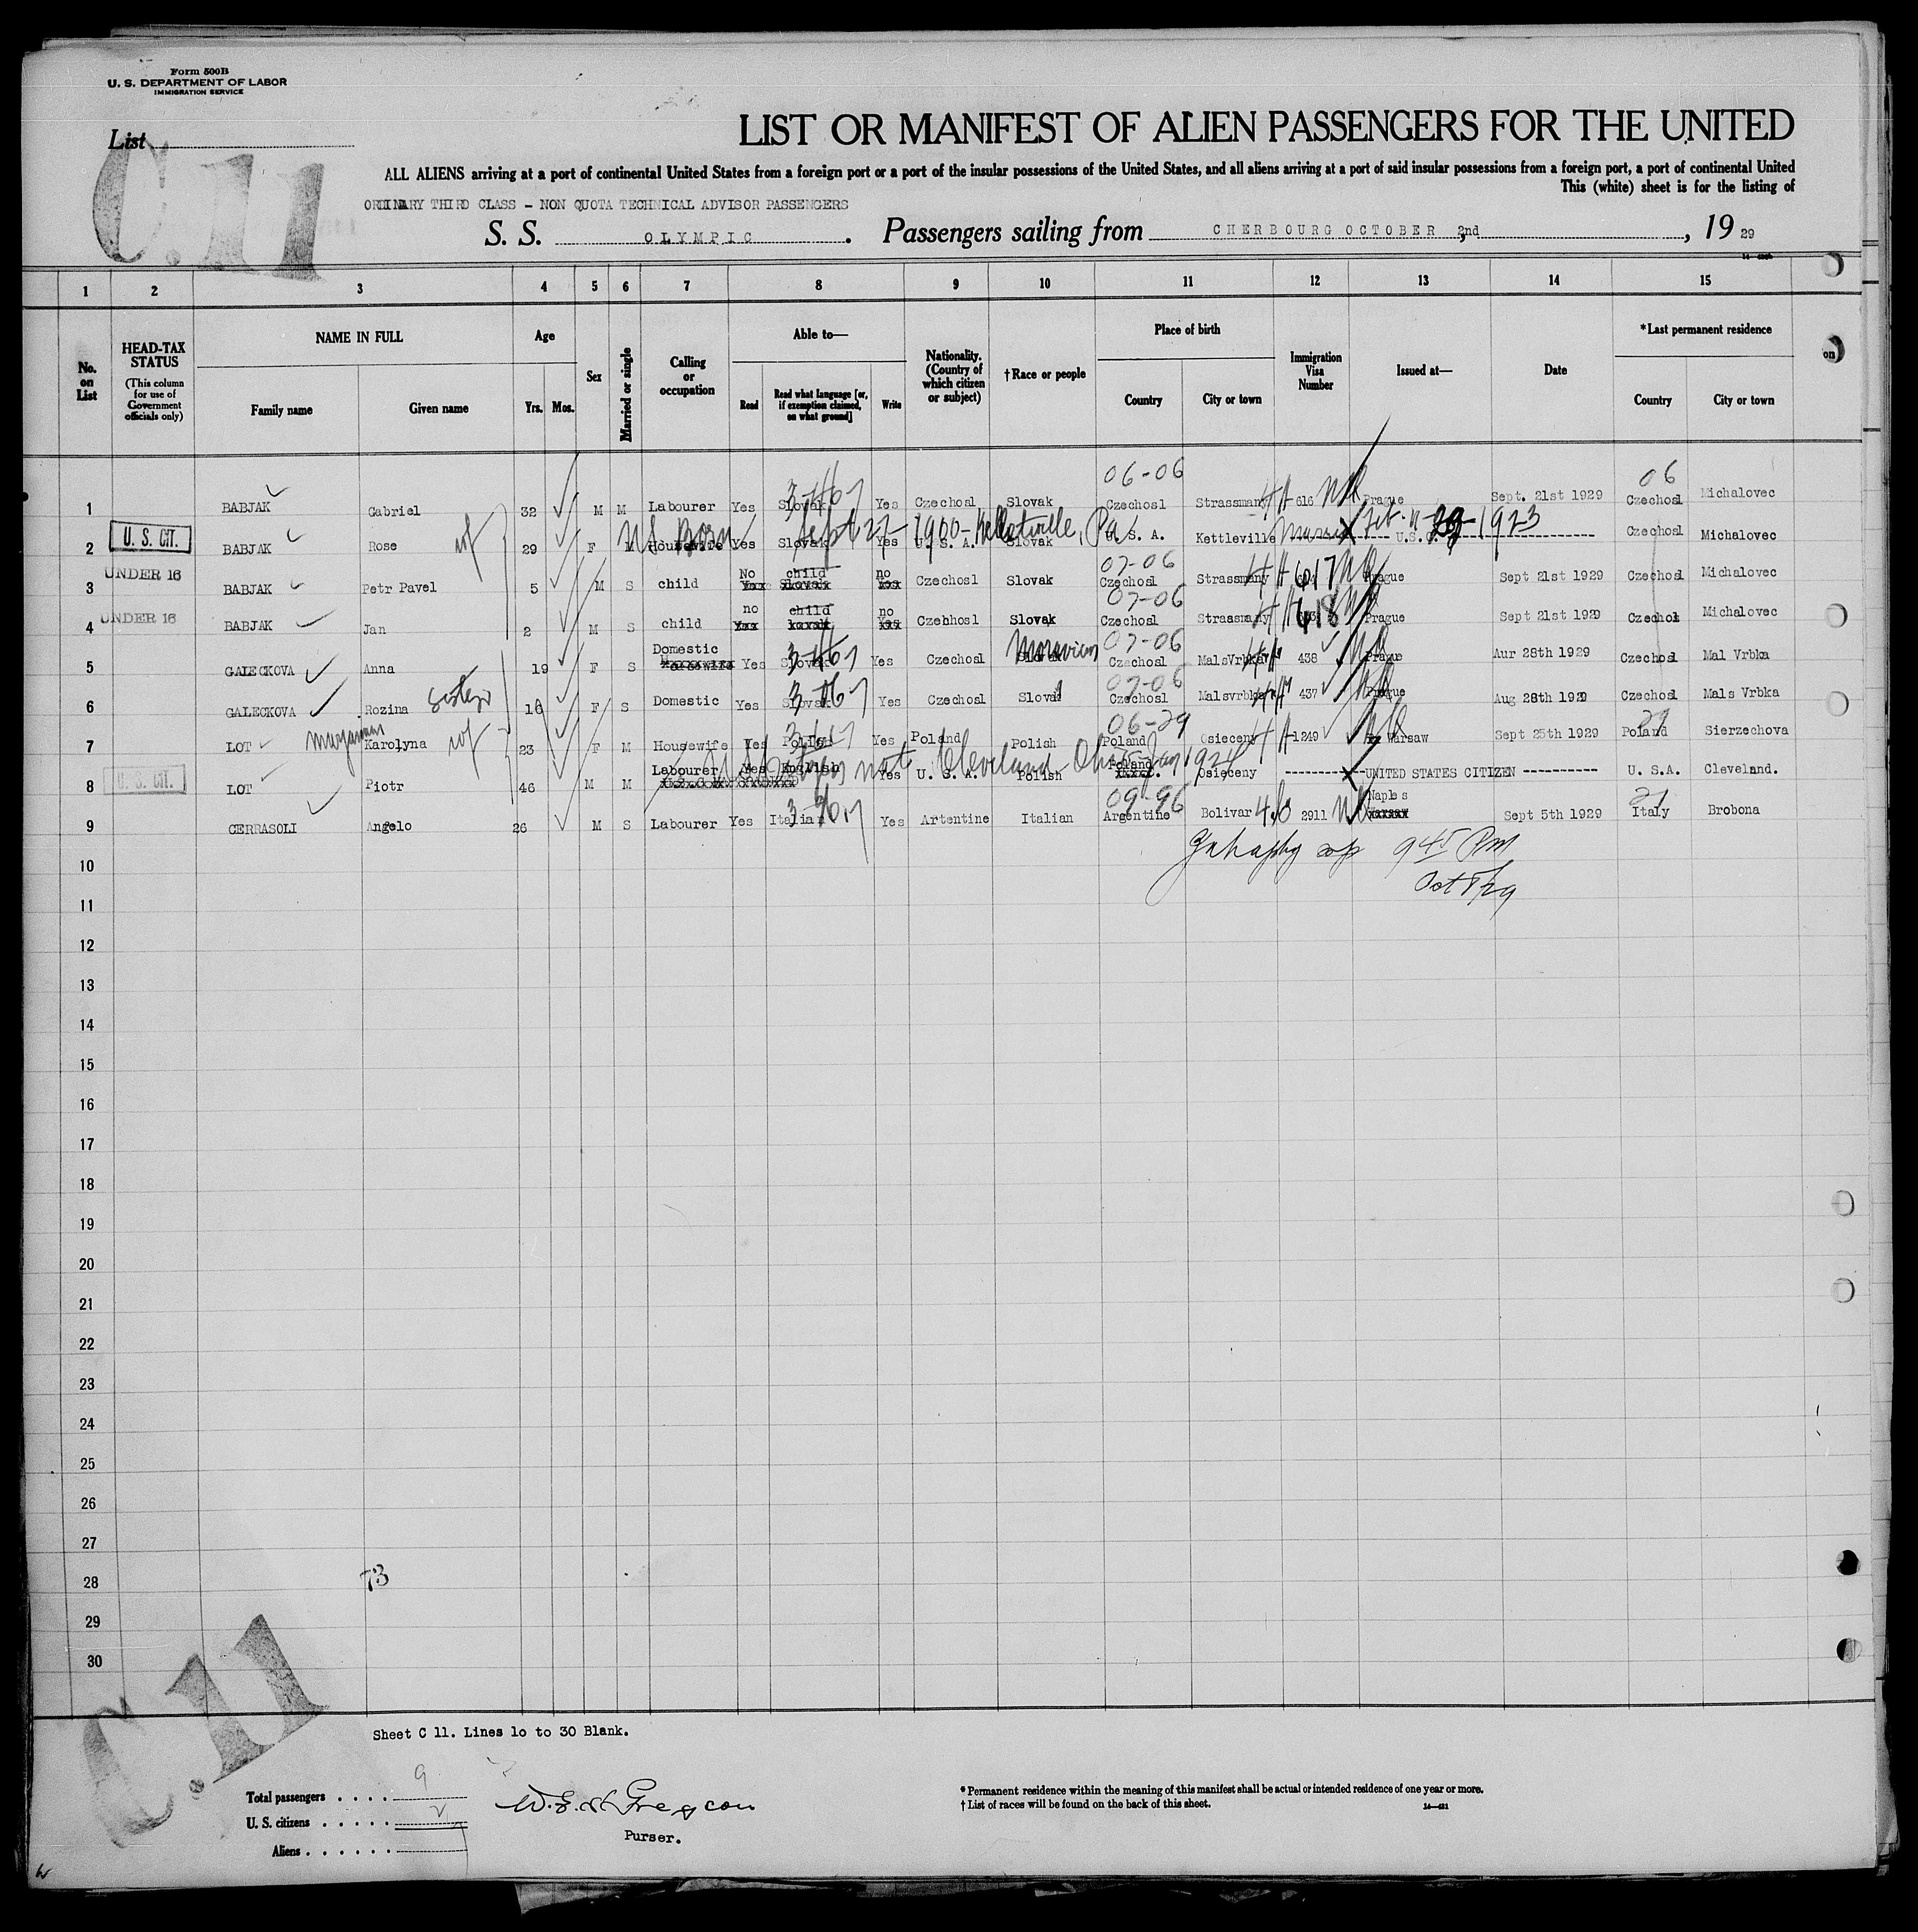 Form 500B
U. S. DEPARTMENT OF LABOR
IMMIGRATION SERVICE
List
C.11
LIST OR MANIFEST OF ALIEN PASSENGERS FOR THE UNITED
ALL ALIENS arriving at a port of continental United States from a foreign port or a port of the insular possessions of the United States, and all aliens arriving at a port of said insular possessions from a foreign port, a port of continental United
This (white) sheet is for the listing of
ORDINARY THIRD CLASS - NON QUOTA TECHNICAL ADVISOR PASSENGERS
S. S. OLYMPIC. Passengers sailing from CHERBOURG OCTOBER 2nd, 1929
1 2 3 4 5 6 7 8 9 10 11 12 13 14 15
No. on List
HEAD-TAX STATUS (This column for use of Government officials only)
NAME IN FULL
Family name Given name
Age
Yrs. Mos.
Sex
Married or single
Calling or occupation
Able to—
Read Read what language [or, if exemption claimed, on what ground] Write
Nationality. (Country of which citizen or subject)
†Race or people
Place of birth
Country City or town
Immigration Visa Number
Issued at—
Date
*Last permanent residence
Country City or town
06-06 06
1 BABJAK Gabriel 32 M M Labourer Yes Slovak Yes Czechosl Slovak Czechosl Strassmany 616 Prague Sept. 21st 1929 Czechosl Michalovec
US Born Sept 27 - 1900 - Pa. Feb. 1923
2 U. S. CIT. BABJAK Rose wf 29 F M Housewife Yes Slovak Yes U. S. A. Slovak U. S. A. Kettleville U.S.C. Czechosl Michalovec
UNDER 16 No child no 07-06
3 BABJAK Petr Pavel 5 M S child Yes Slovak Yes Czechosl Slovak Czechosl Strassmany 617 Prague Sept 21st 1929 Czechosl Michalovec
UNDER 16 no child no 07-06
4 BABJAK Jan 2 M S child Czehhosl Slovak Czechosl Strassmany 618 Prague Sept 21st 1929 Czechosl Michalovec
Domestic Moravian 07-06
5 GALECKOVA Anna 19 F S Yes Slovak Yes Czechosl Slovak Czechosl MalsVrbka 438 Prague Aur 28th 1929 Czechosl Mal Vrbka
07-06
6 GALECKOVA Rozina sister 16 F S Domestic Yes Slovak Yes Czechosl Slovak Czechosl Malsvrbka 437 Prague Aug 28th 1929 Czechosl Mals Vrbka
06-29 29
7 LOT Karolyna wf 23 F M Housewife Yes Polish Yes Poland Polish Poland Osieceny 1249 Warsaw Sept 25th 1929 Poland Sierzechova
Cleveland Ohio Jan 1924
8 U. S. CIT. LOT Piotr 46 M M Labourer Yes English Yes U. S. A. Polish Poland Osieceny UNITED STATES CITIZEN U. S.A. Cleveland.
09-96 Naples
9 CERRASOLI Angelo 26 M S Labourer Yes Italian Yes Artentine Italian Argentine Bolivar 2911 Sept 5th 1929 Italy Brobona
10
9 45 Pm
11
12
13
14
15
16
17
18
19
20
21
22
23
24
25
26
27
28 73
29
30
C.11
Sheet C 11. Lines 1o to 30 Blank.
Total passengers . . . . 9
U. S. citizens . . . . . 2
Aliens . . . . . . 7
Purser.
*Permanent residence within the meaning of this manifest shall be actual or intended residence of one year or more.
†List of races will be found on the back of this sheet.